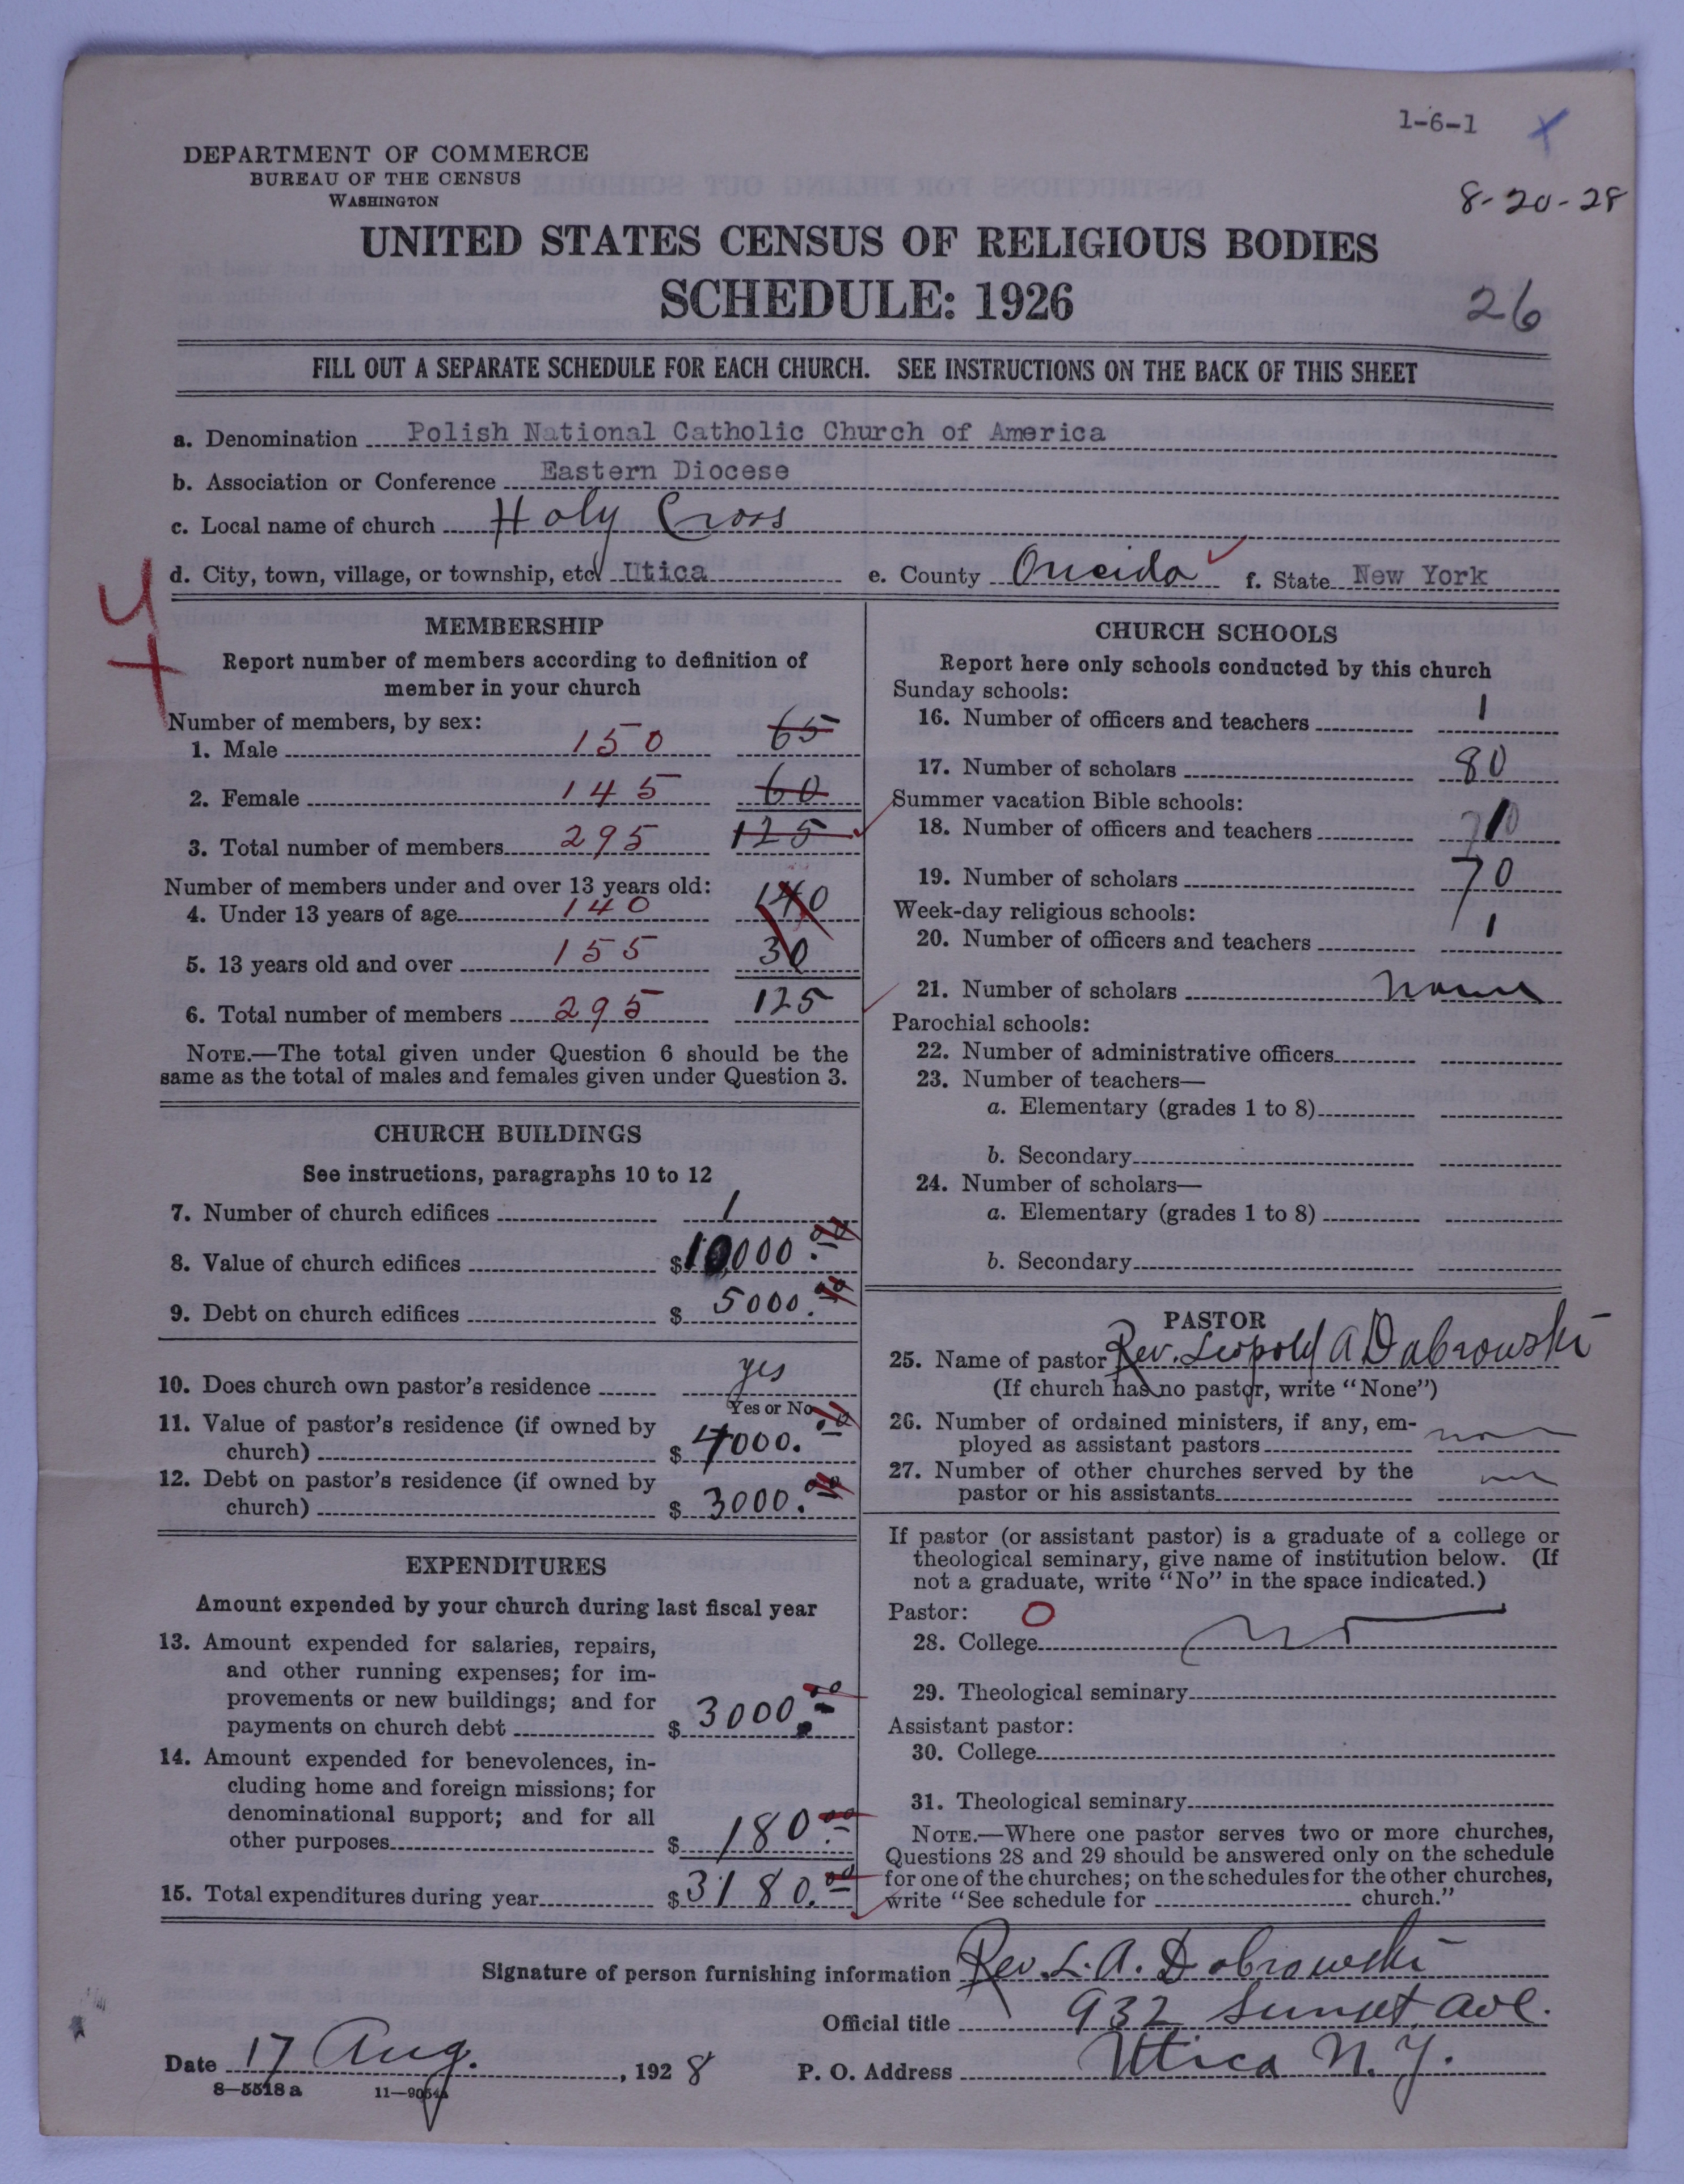 1-6-1 x
8-20-28
DEPARTMENT OF COMMERCE
BUREAU OF THE CENSUS
WASHINGTON
UNITED STATES CENSUS OF RELIGIOUS BODIES
SCHEDULE: 1926
26
FILL OUT A SEPARATE SCHEDULE FOR EACH CHURCH. SEE INSTRUCTIONS ON THE BACK OF THIS SHEET
a. Denomination Polish National Catholic Church of America
b. Association or Conference Eastern Diocese
c. Local name of church Holy Cross
d. City, town, village, or township, etc. Utica e. County Oneida f. State New York
MEMBERSHIP
Report number of members according to definition of
member in your church
Number of members, by sex:
1. Male 150 65
2. Female 145 60
3. Total number of members 295 125
Number of members under and over 13 years old:
4. Under 13 years of age 140 140
5. 13 years old and over 155 30
6. Total number of members 295 125
NOTE.—The total given under Question 6 should be the
same as the total of males and females given under Question 3.
CHURCH BUILDINGS
See instructions, paragraphs 10 to 12
7. Number of church edifices 1
8. Value of church edifices $10,000.00
9. Debt on church edifices $5000.00
10. Does church own pastor's residence yes
Yes or No
11. Value of pastor's residence (if owned by
church) $4000.00
12. Debt on pastor's residence (if owned by
church) $3000.00
EXPENDITURES
Amount expended by your church during last fiscal year
13. Amount expended for salaries, repairs,
and other running expenses; for im-
provements or new buildings; and for
payments on church debt $3000.00
14. Amount expended for benevolences, in-
cluding home and foreign missions; for
denominational support; and for all
other purposes $180.00
15. Total expenditures during year $3180.00
CHURCH SCHOOLS
Report here only schools conducted by this church
Sunday schools:
16. Number of officers and teachers 1
17. Number of scholars 80
Summer vacation Bible schools:
18. Number of officers and teachers
19. Number of scholars 70
Week-day religious schools:
20. Number of officers and teachers 1
21. Number of scholars none
Parochial schools:
22. Number of administrative officers
23. Number of teachers—
a. Elementary (grades 1 to 8)
b. Secondary
24. Number of scholars—
a. Elementary (grades 1 to 8)
b. Secondary
PASTOR
25. Name of pastor Rev. Leopold A Dabrowski
(If church has no pastor, write "None")
26. Number of ordained ministers, if any, em-
ployed as assistant pastors
27. Number of other churches served by the
pastor or his assistants
If pastor (or assistant pastor) is a graduate of a college or
theological seminary, give name of institution below. (If
not a graduate, write "No" in the space indicated.)
Pastor: O
28. College no
29. Theological seminary
Assistant pastor:
30. College
31. Theological seminary
NOTE.—Where one pastor serves two or more churches,
Questions 28 and 29 should be answered only on the schedule
for one of the churches; on the schedules for the other churches,
write "See schedule for church."
Signature of person furnishing information Rev. L. A. Dabrowski
Official title 932 Sunset ave.
Date 17 Aug. , 1928 P. O. Address Utica N.Y.
8-5518 a 11-9054a